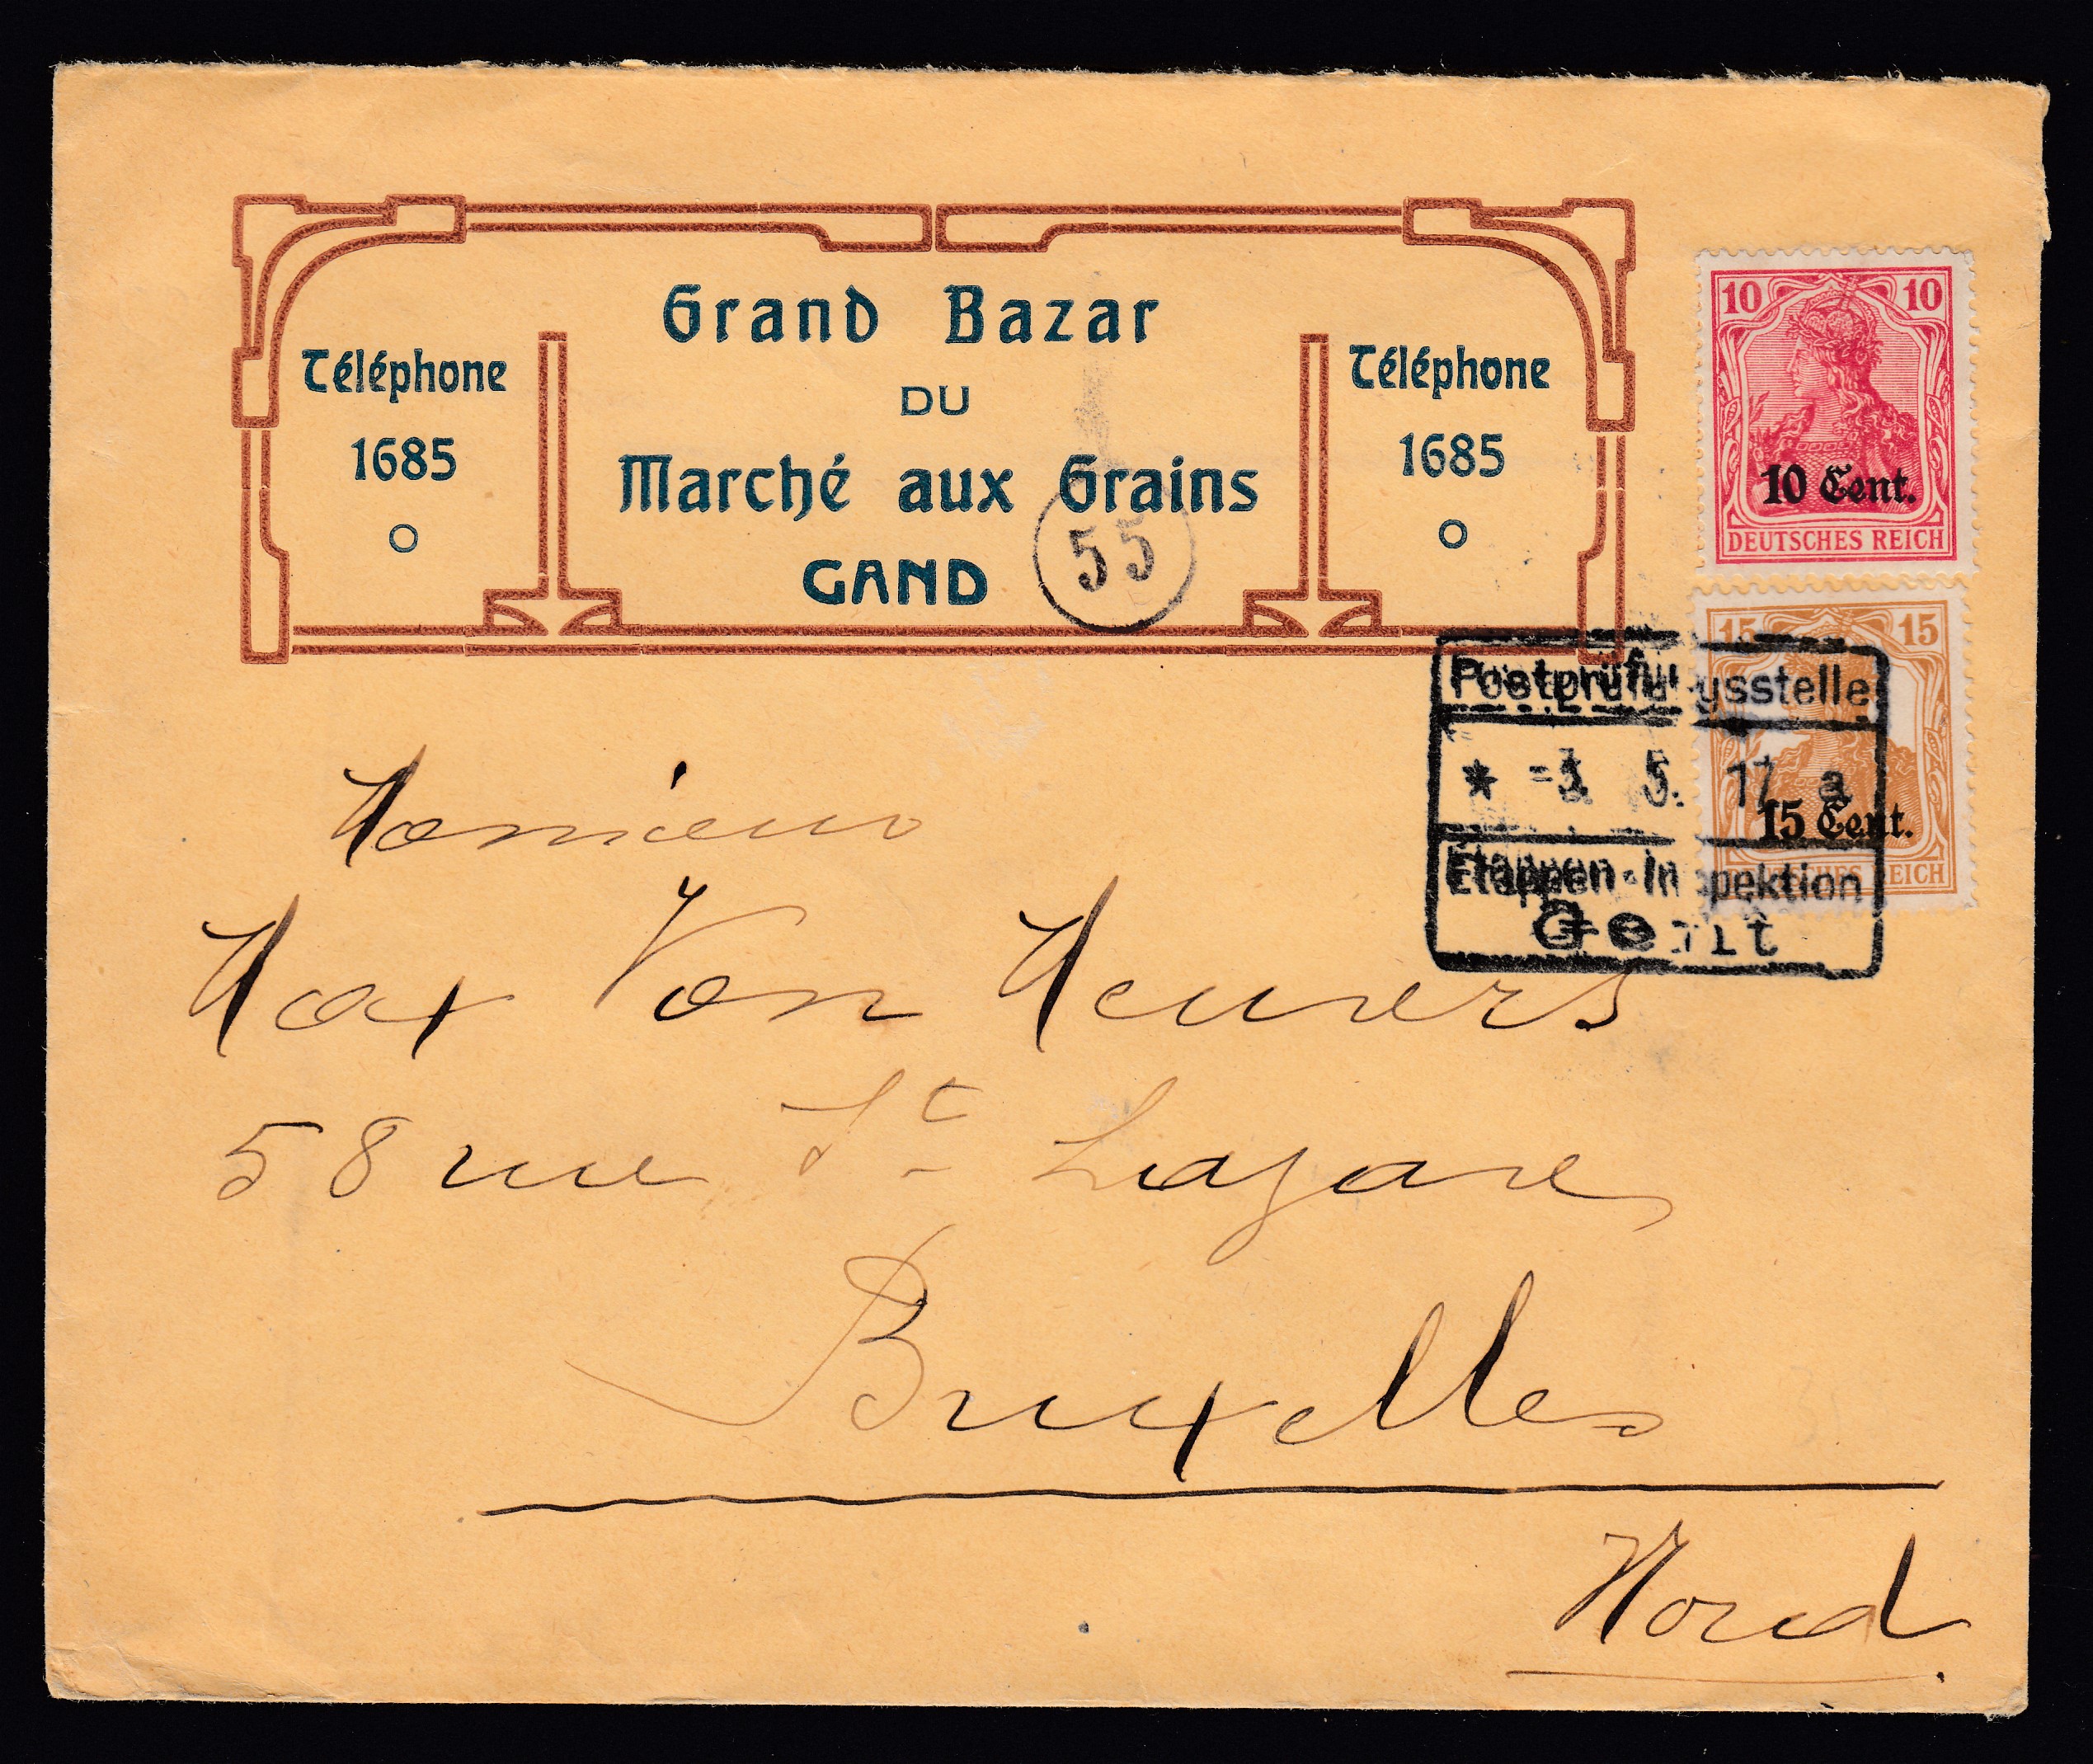 Grand Bazar
DU
Marché aux Grains
GAND
Téléphone
1685
Téléphone
1685
55
10 10
10 Cent.
DEUTSCHES REICH
15 15
15 Cent.
REICH
Postprüfungsstelle
* -3. 5. 17 a
Etappen-Inspektion
Gent
Monsieur
Max Van Meuvers
58 rue St Lazare
Bruxelles
Nord